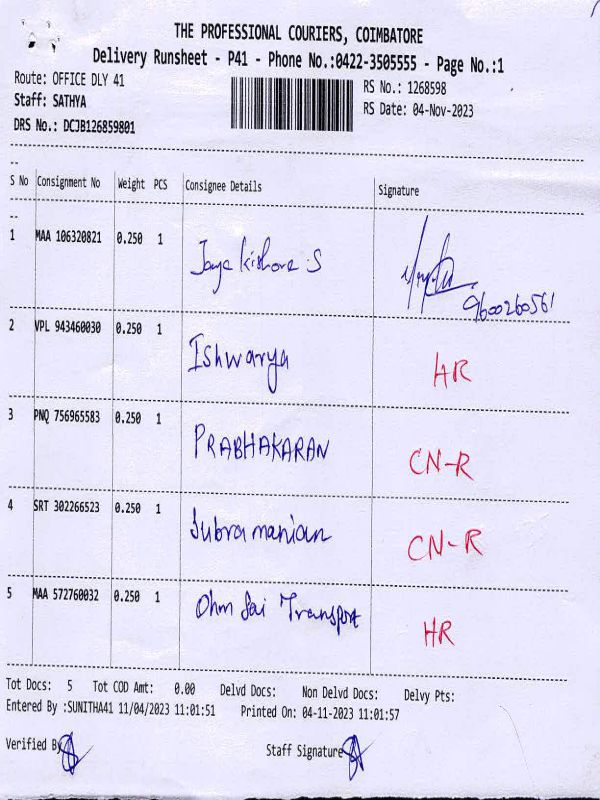 THE PROFESSIONAL COURIERS, COIMBATORE
Delivery Runsheet - P41 - Phone No.:0422-3505555 - Page No.:1
Route: OFFICE DLY 41
RS No.: 1268598
Staff: SATHYA
RS Date: 04-Nov-2023
DRS No.: DCJB126859801
S No Consignment No Weight PCS Consignee Details Signature
1 MAA 106320821 0.250 1 Jaya kishore .S
9600260561
2 VPL 943460030 0.250 1 Ishwarya HR
3 PNQ 756965583 0.250 1 PRABHAKARAN CN-R
4 SRT 302266523 0.250 1 Subramanian CN-R
5 MAA 572760032 0.250 1 Ohm Sai Transport HR
Tot Docs: 5 Tot COD Amt: 0.00 Delvd Docs: Non Delvd Docs: Delvy Pts:
Entered By :SUNITHA41 11/04/2023 11:01:51 Printed On: 04-11-2023 11:01:57
Verified By Staff Signature